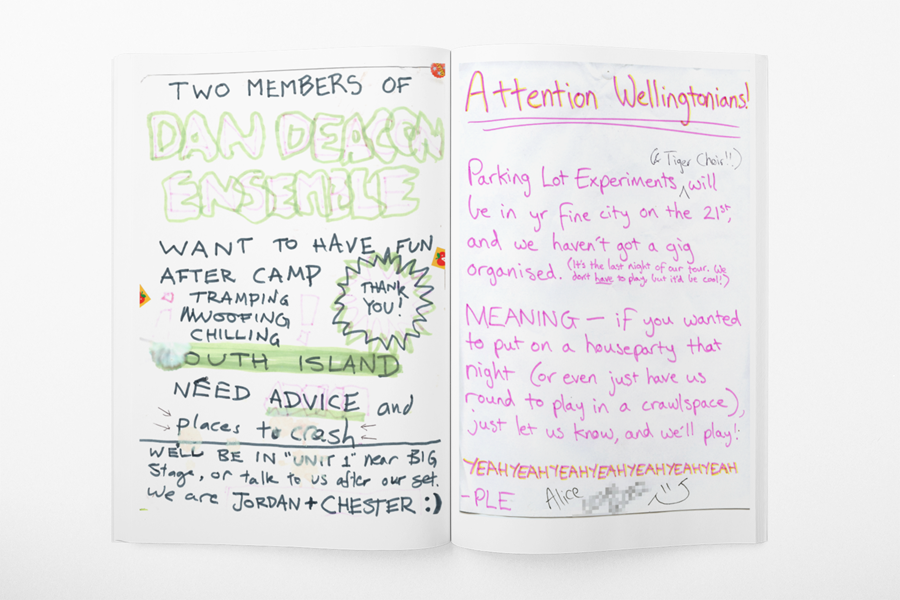 TWO MEMBERS OF
DAN DEACON
ENSEMBLE
WANT TO HAVE FUN
AFTER CAMP
TRAMPING
WWOOFING
CHILLING
THANK
YOU!
SOUTH ISLAND
NEED ADVICE and
places to crash
WE'LL BE IN "UNIT 1" near BIG
Stage, or talk to us after our set.
We are JORDAN + CHESTER :)
Attention Wellingtonians!
(& Tiger Choir!!)
Parking Lot Experiments will
be in yr fine city on the 21st,
and we haven't got a gig
organised. (It's the last night of our tour. We
don't have to play, but it'd be cool!)
MEANING — if you wanted
to put on a houseparty that
night (or even just have us
round to play in a crawlspace),
just let us know, and we'll play!
YEAHYEAHYEAHYEAHYEAHYEAHYEAH
-PLE Alice